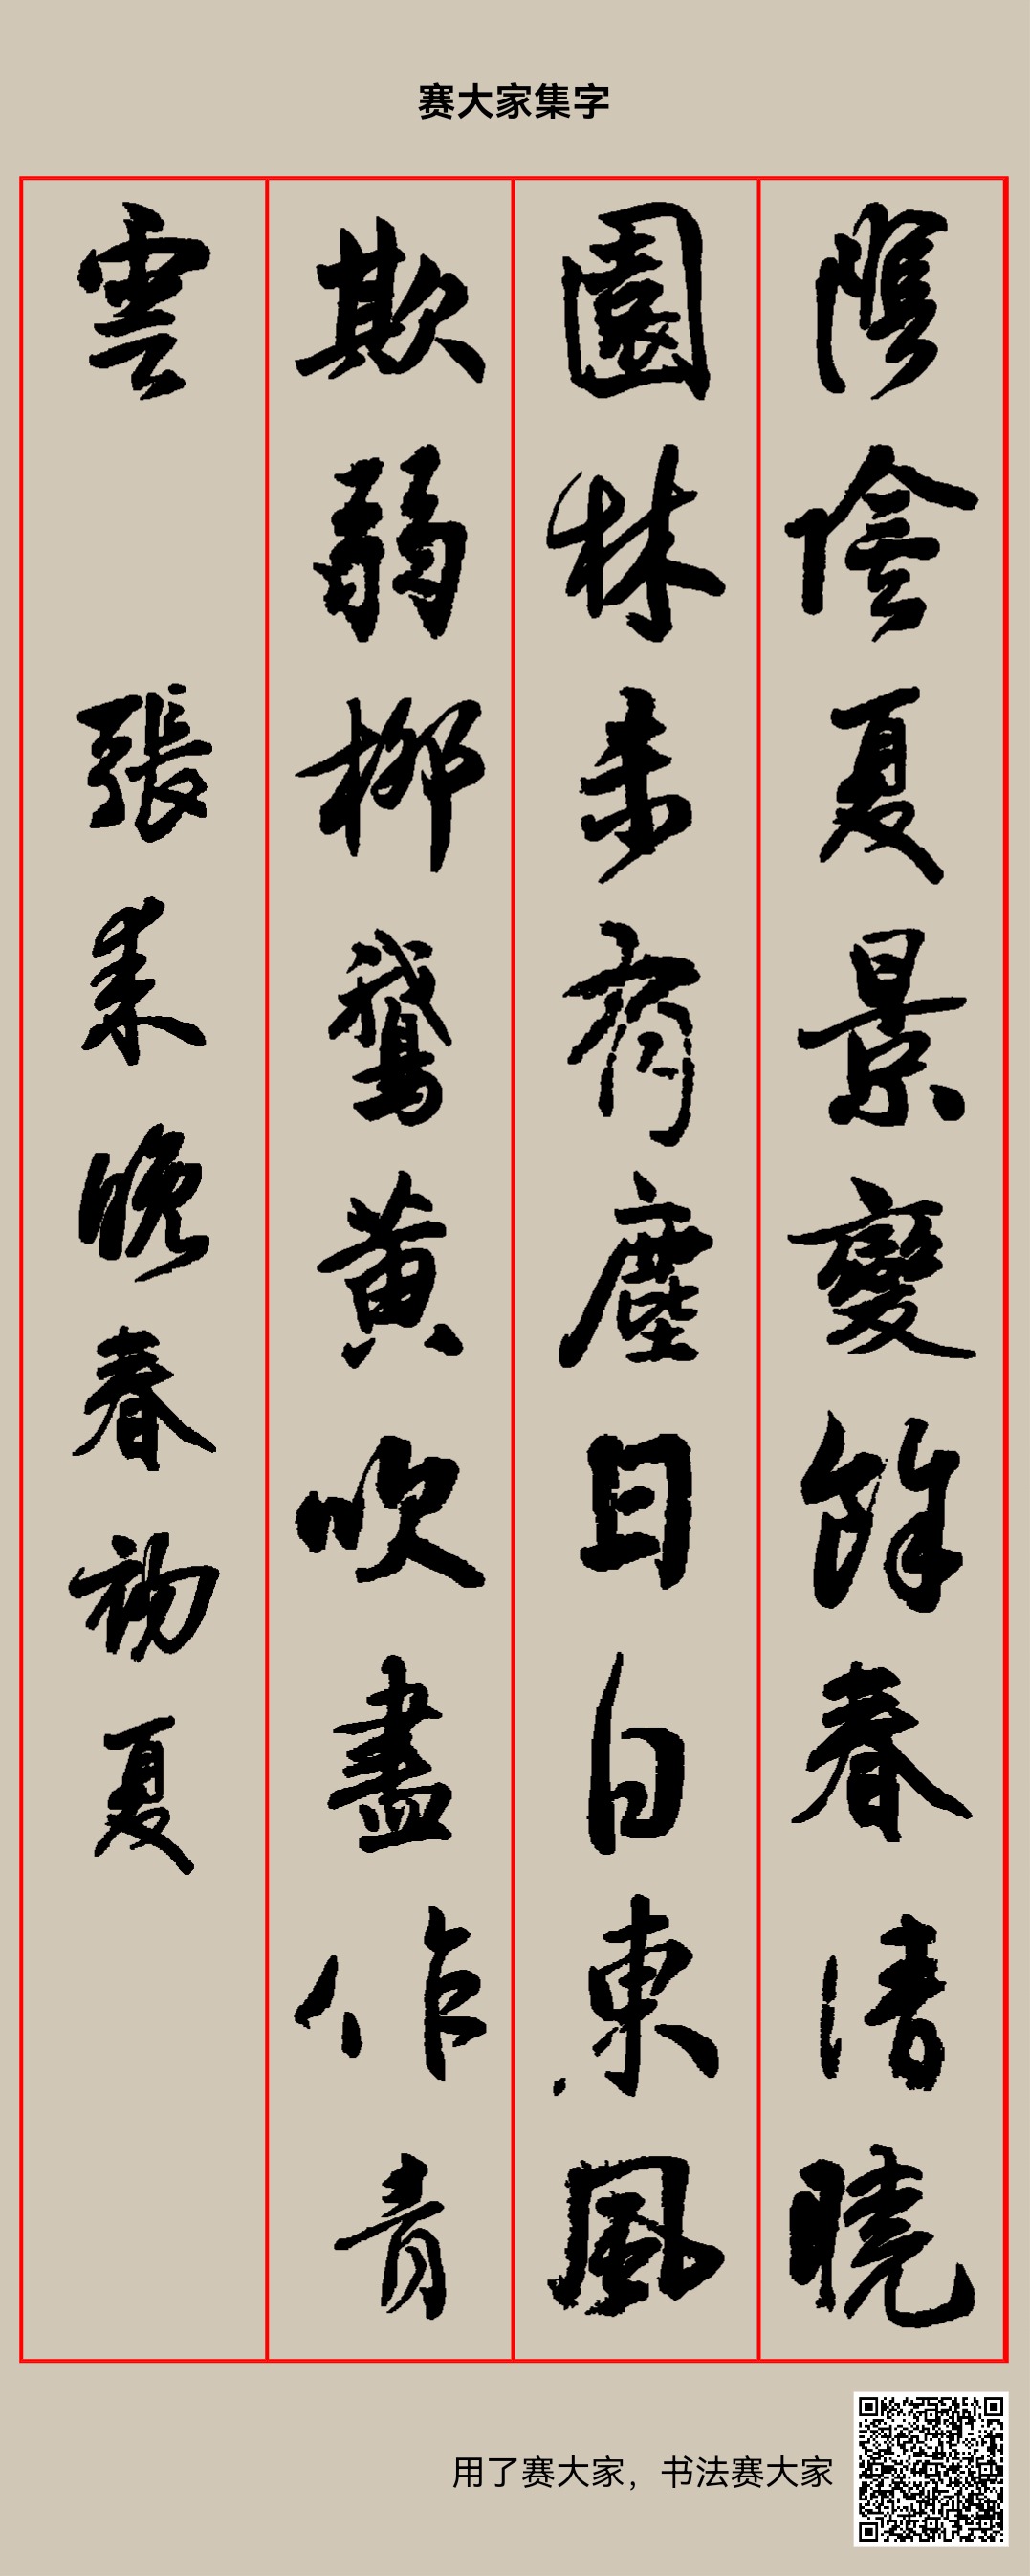 赛大家集字
隱陰夏景變餘春清曉
園林未有塵日白東風
欺弱柳鵞黄吹盡作青
雲 張耒晚春初夏
用了赛大家，书法赛大家